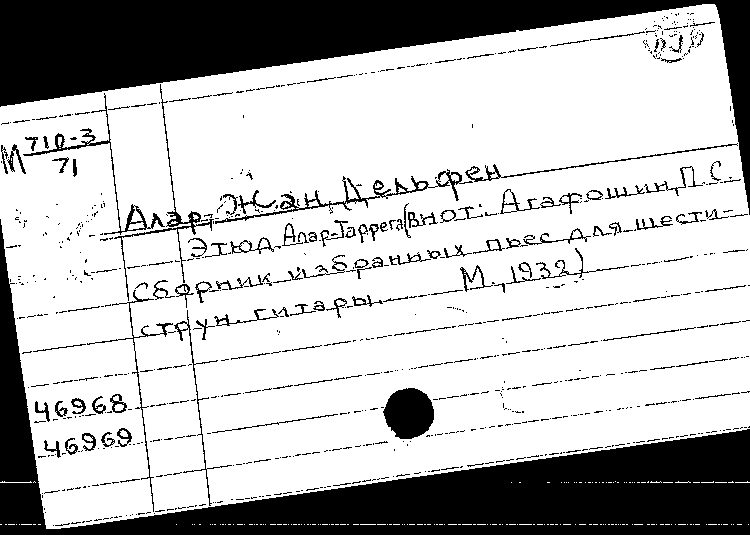 М 710-3
71
Алар, Жан Дельфен
Этюд. Алар-Таррега (В нот: Агафошин, П.С.
Сборник избранных пьес для шести-
струн. гитары. М., 1932)
46968
46969